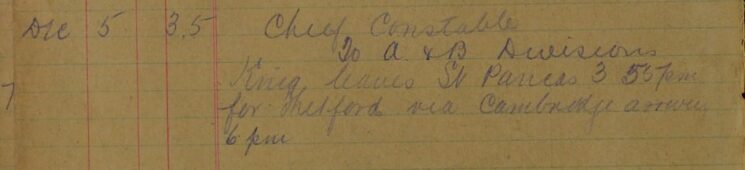 Dec 5 3.5 Chief Constable
To A & B Divisions
King leaves St Pancras 3 55 pm
7
for Thetford via Cambridge arrives
6 pm